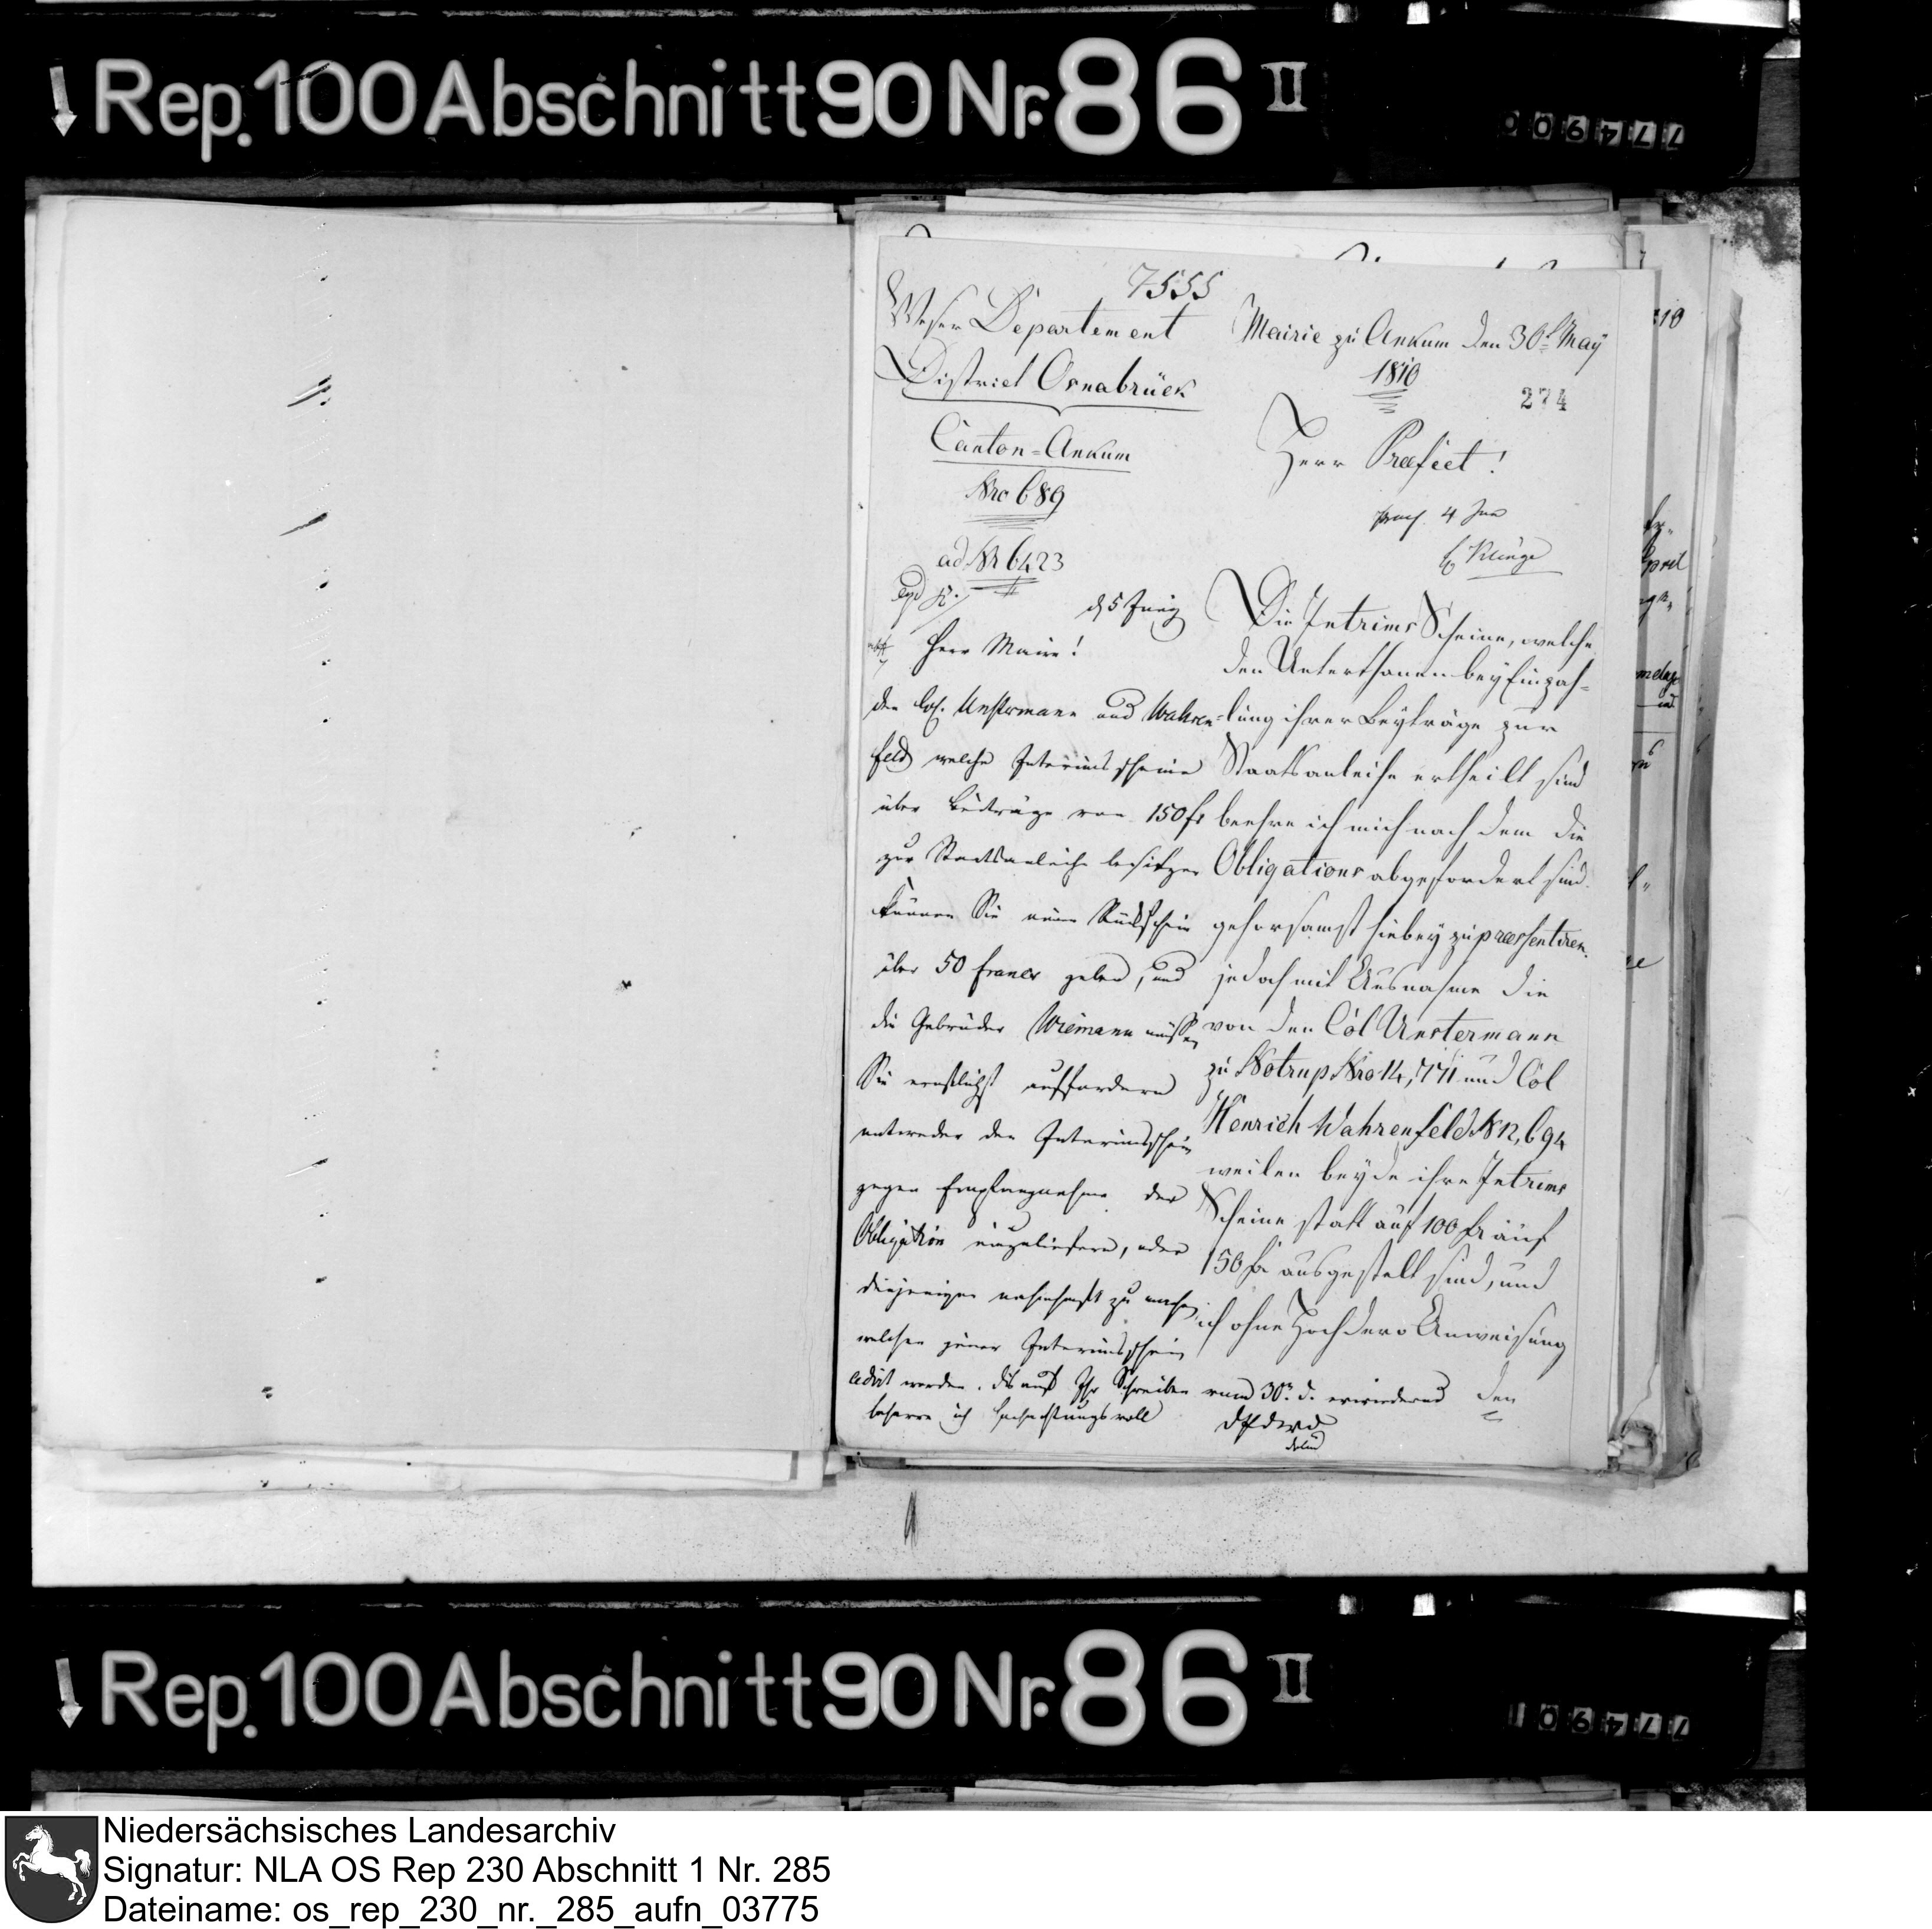 Rep. 100 Abschnitt 90 Nr. 86 II
774900
7555
Weser Departement
District Osnabrück
Canton-Ankum
Nro 689
ad Nr 6423
Mairie zu Ankum den 30t May
1810
274
Herr Præfect!
præs. 4 Jun
Die Intrims Scheine, welche
den Unterthanen bey Einzah-
lung ihrer Beyträge zur
Staatsanleihe ertheilt sind
beehre ich mich nach dem die
Obligations abgefordert sind
gehorsamst hiebey zu præsentiren.
jedoch mit Ausnahme die
von den Col Unstermann
zu Notrup Nro 14,771 und Col
Henrich Wahrenfeld N 12,694
weilen beyde ihre Intrims
Scheine statt auf 100 fr auf
150 fr ausgestelt sind, und
ich ohne Hochdero Anweisung
den
d 5 Juny
Herr Maire!
den Col. Unstermann und Wahren-
feld welche Interimsscheine
über Beiträge von 150 fr
zur Staatsanleihe besitzen
können Sie einen Rückschein
über 50 francs geben, und
die Gebrüder Wiemann müssen
Sie ernstlichst auffordern
entweder den Interimsschein
gegen Empfangnahme der
Obligation einzuliefern, oder
denjenigen nahmhaft zu machen,
welchen jener Interimsschein
cedirt worden. Dis auf Ihr Schreiben vom 30n d. erwiedernd
beharre ich hochachtungsvoll
Rep. 100 Abschnitt 90 Nr. 86 II
774901
Niedersächsisches Landesarchiv
Signatur: NLA OS Rep 230 Abschnitt 1 Nr. 285
Dateiname: os_rep_230_nr._285_aufn_03775